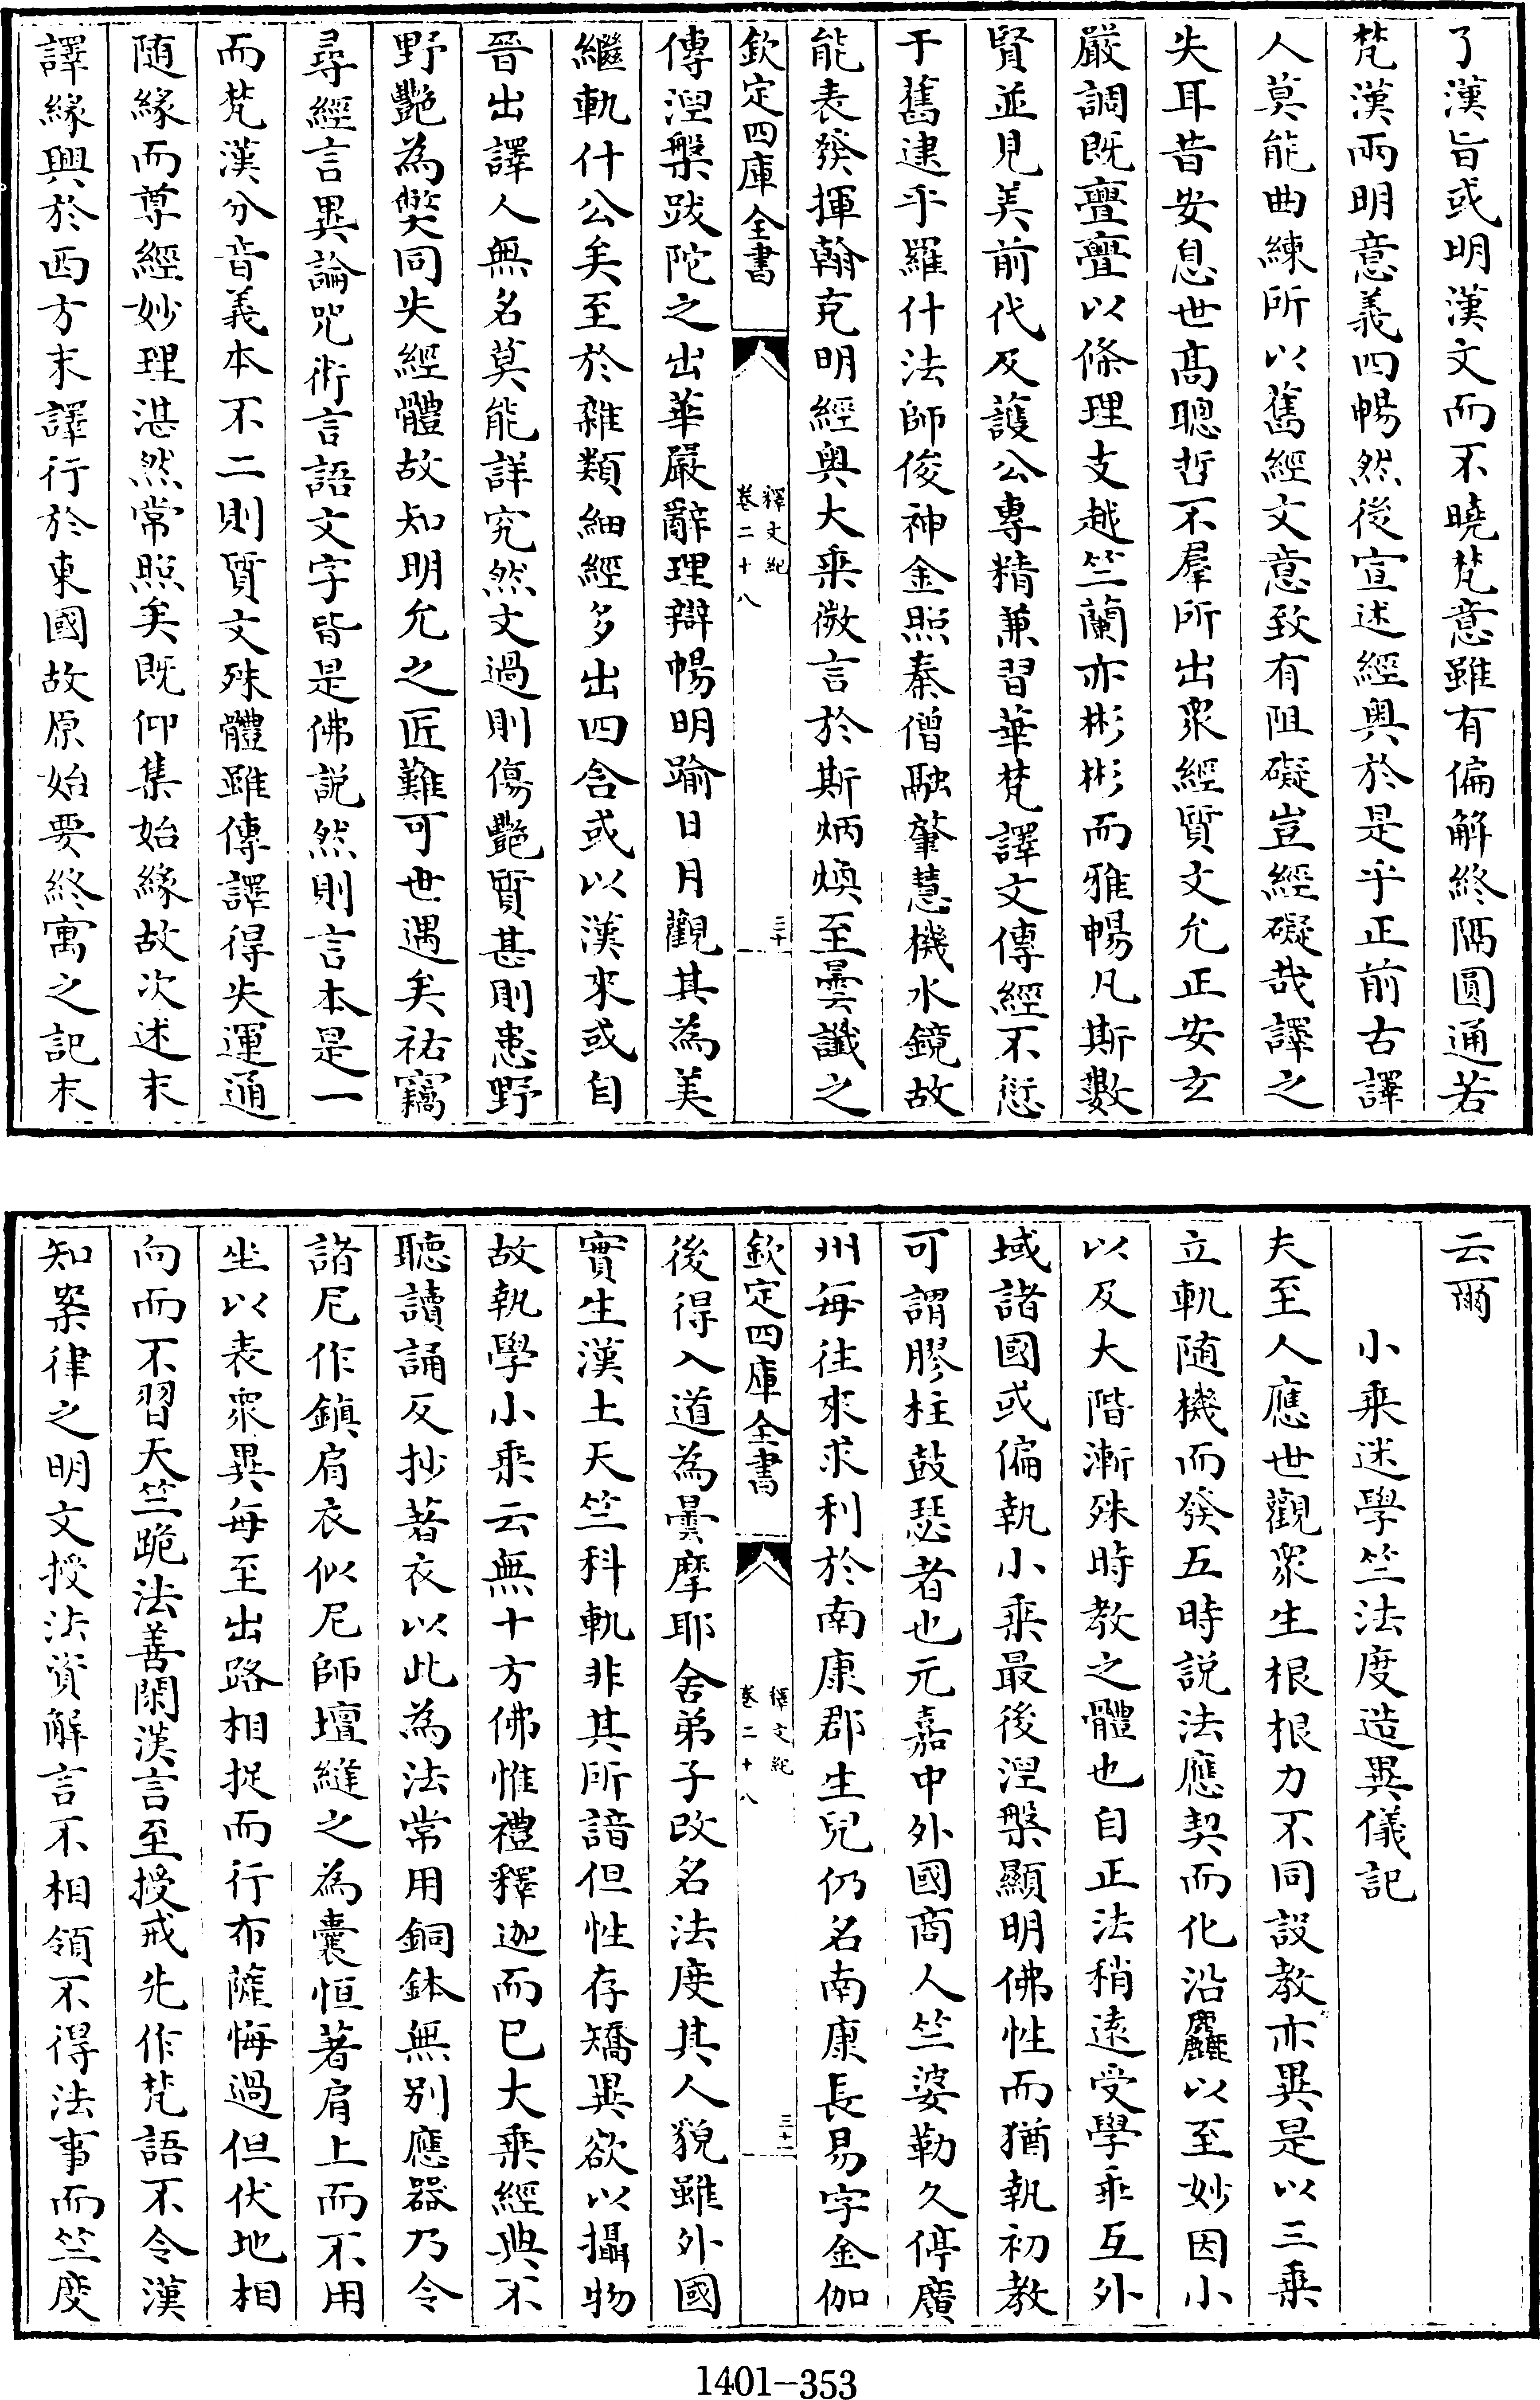 了漢旨或明漢文而不曉梵意雖有偏解終隔圓通若
梵漢兩明意義四暢然後宣述經奥於是乎正前古譯
人莫能曲練所以舊經文意致有阻礙豈經礙哉譯之
失耳昔安息世高聰哲不羣所出衆經質文允正安玄
嚴調既亹亹以條理支越竺蘭亦彬彬而雅暢凡斯數
賢並見美前代及護公專精兼習華梵譯文傳經不愆
于舊逮乎羅什法師俊神金照秦僧融肇慧機水鏡故
能表發揮翰克明經奥大乘微言於斯炳煥至曇讖之
欽定四庫全書
釋文紀
卷二十八
三十
傳涅槃跋陀之出華嚴辭理辯暢明踰日月觀其為美
繼軌什公矣至於雜類細經多出四含或以漢來或自
晉出譯人無名莫能詳究然文過則傷艷質甚則患野
野艷為弊同失經體故知明允之匠難可世遇矣祐竊
尋經言異論呪術言語文字皆是佛説然則言本是一
而梵漢分音義本不二則質文殊體雖傳譯得失運通
随緣而尊經妙理湛然常照矣既仰集始緣故次述末
譯緣興於西方末譯行於東國故原始要終寓之記末
云爾
小乘迷學竺法度造異儀記
夫至人應世觀衆生根根力不同設教亦異是以三乘
立軌随機而發五時説法應契而化沿麤以至妙因小
以及大階漸殊時教之體也自正法稍遠受學乖互外
域諸國或偏執小乘最後涅槃顯明佛性而猶執初教
可謂膠柱鼓瑟者也元嘉中外國商人竺婆勒久停廣
州每往來求利於南康郡生兒仍名南康長易字金伽
欽定四庫全書
釋文紀
卷二十八
三十一
後得入道為曇摩耶舍弟子改名法度其人貌雖外國
實生漢土天竺科軌非其所諳但性存矯異欲以攝物
故執學小乘云無十方佛惟禮釋迦而已大乘經典不
聽讀誦反抄著衣以此為法常用銅鉢無别應器乃令
諸尼作鎮肩衣似尼師壇縫之為囊恒著肩上而不用
坐以表衆異每至出路相捉而行布薩悔過但伏地相
向而不習天竺跪法善閑漢言至授戒先作梵語不令漢
知案律之明文授法資解言不相領不得法事而竺度
1401-353